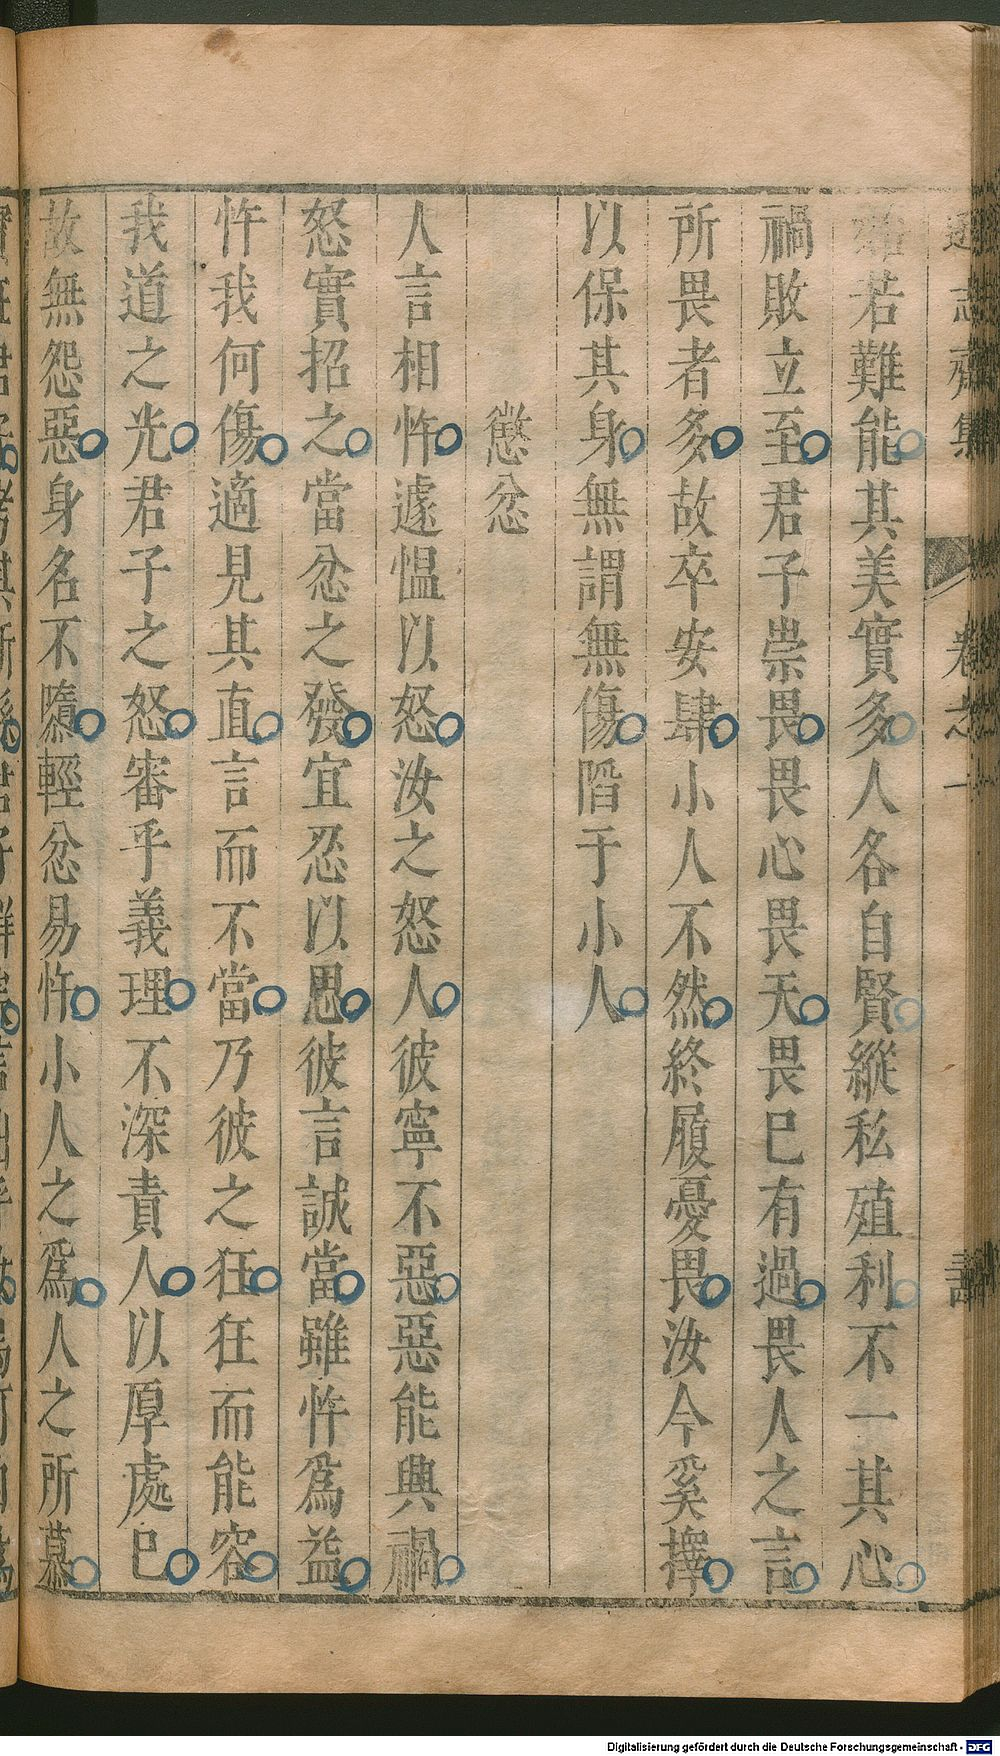 遜志齋集 卷之一
若難能其美實多人各自賢縱私殖利不一其心
禍敗立至君子崇畏畏心畏天畏巳有過畏人之言
所畏者多故卒安肆小人不然終履憂畏汝今奚擇
以保其身無謂無傷陷于小人
懲忿
人言相忤遽愠以怒汝之怒人彼寧不惡惡能興禍
怒實招之當忿之發宜忍以思彼言誠當雖忤爲益
忤我何傷適見其直言而不當乃彼之狂狂而能容
我道之光君子之怒審乎義理不深責人以厚處巳
故無怨惡身名不隳輕忿易忤小人之爲人之所慕
Digitalisierung gefördert durch die Deutsche Forschungsgemeinschaft - DFG